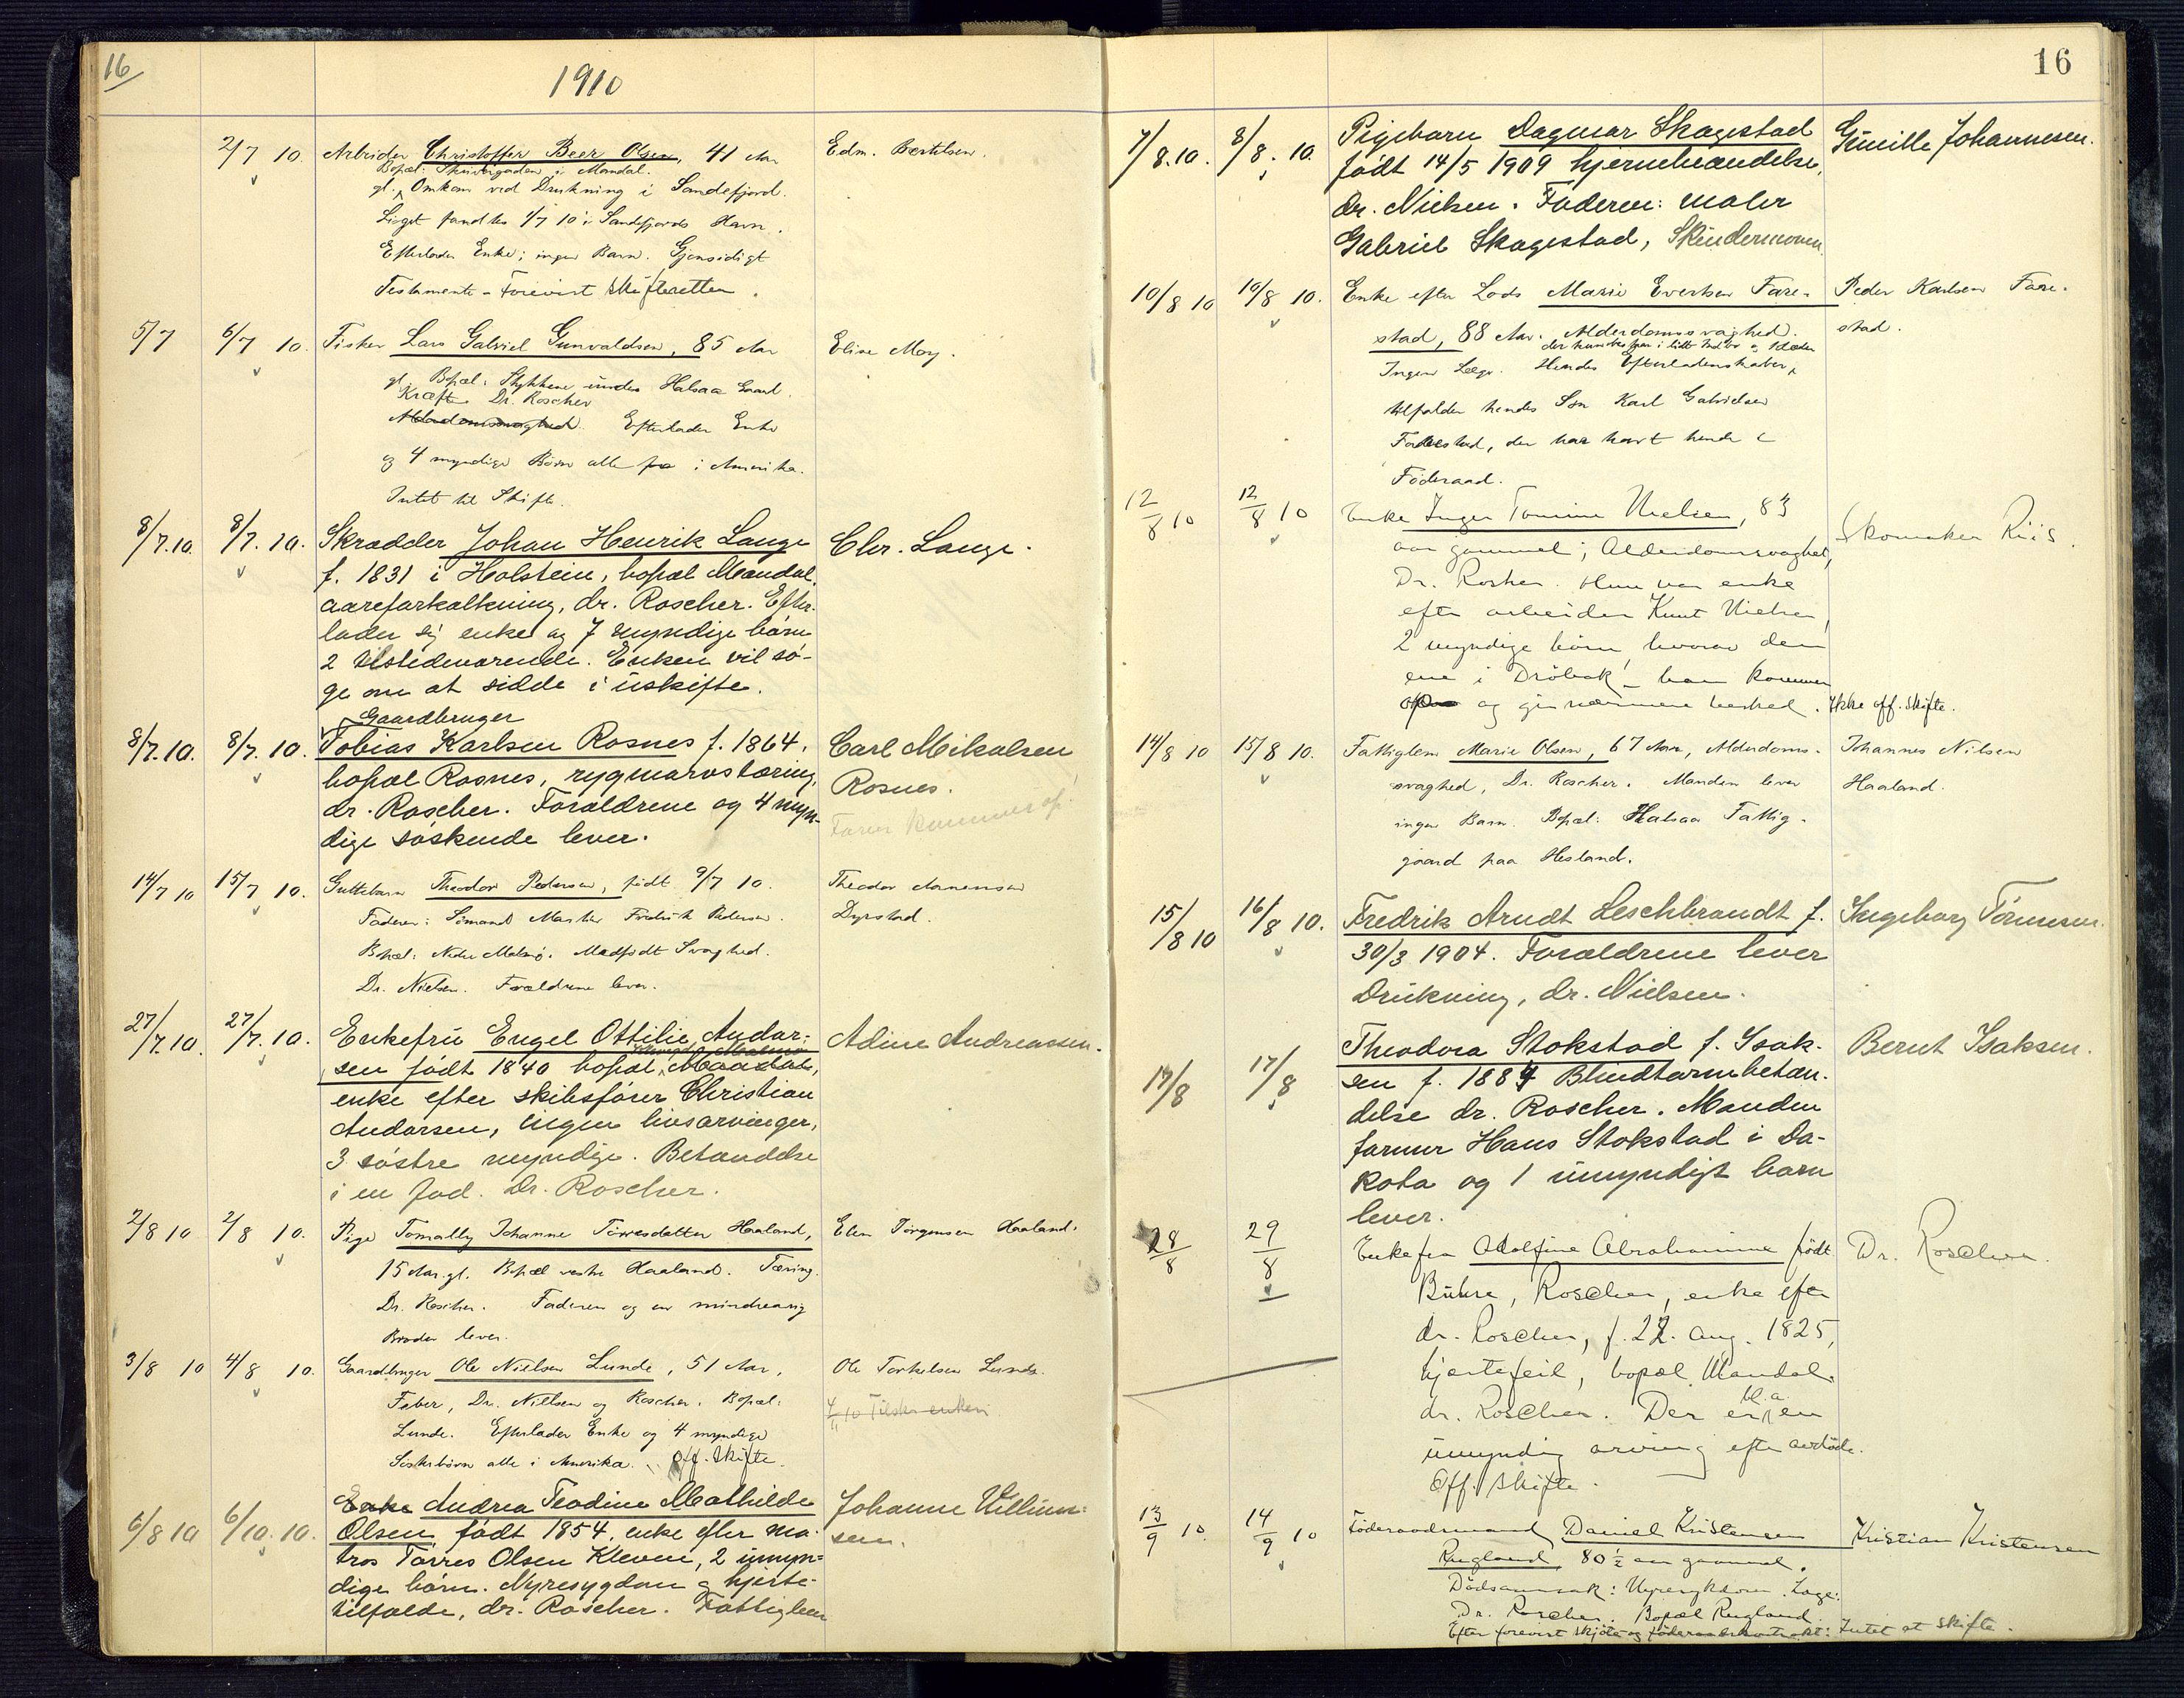 16
1910
2/7 10. Arbeider Christoffer Beer Olsen, 41 Aar Edm. Bertelsen.
Bopæl: Skrivergaden i Mandal.
gl. Omkom ved Drukning i Sandefjord.
Liget fandtes 1/7 10 i Sandefjords Havn.
Efterlader Enke; ingen Barn. Gjensidigt
Testamente - Forevist Skifteretten.
5/7 6/7 10. Fisker Lars Gabriel Gunvaldsen, 85 Aar Elise Moy.
gl. Bopæl: Stykkene under Halsaa Gaard.
Kræft Dr. Roscher
Alderdomssvaghed. Efterlader Enke
og 4 myndige Børn alle i Amerika.
Intet til Skifte.
8/7.10. 8/7.10. Skrædder Johan Henrik Lange Chr. Lange.
f. 1831 i Holstein, bopæl Mandal.
aareforkalkning, dr. Roscher. Efter-
lader sig enke og 7 myndige børn
2 tilstedeværende. Enken vil sø-
ge om at sidde i uskifte.
Gaardbruger
8/7.10. 8/7.10. Tobias Karlsen Rosnes f. 1864, Carl Mikalsen
bopæl Rosnes, rygmarvstæring, Rosnes.
dr. Roscher. Forældrene og 4 myn- Faren kommer op!
dige søskende lever.
14/7 10 15/7 10. Guttebarn Theodor Pedersen, født 9/7 10. Theodor Aanensen
Faderen: Sømand Martin Fredrik Pedersen. Dyrstad.
Bopæl: Nedre Malmø. Medfødt Svaghed.
Dr. Nielsen. Forældrene lever.
27/7.10. 27/7.10. Enkefru Engel Ottilie Andor- Adine Andreassen.
sen født 1840 bopæl Mandal,
enke efter skibsfører Christian
Andorsen, ingen livsarvinger,
3 søstre myndige. Betændelse
i en fod. Dr. Roscher.
2/8 10 2/8 10. Pige Tomally Johanne Torresdatter Haaland, Elen Jørgensen Haaland.
15 Aar gl. Bopæl vestre Haaland. Tæring.
Dr. Roscher. Faderen og en mindreaarig
Broder lever.
3/8 10 4/8 10. Gaardbruger Ole Nielsen Lunde, 51 Aar, Ole Torkelsen Lunde.
Feber, Dr. Nielsen og Roscher. Bopæl: 4/11 10 Tilskr. enken
Lunde. Efterlader Enke og 4 myndige
Søsterbørn alle i Amerika. Off. Skifte.
6/8 10 6/10.10. Enke Andrea Teodine Mathilde Johanne Willum-
Olsen født 1854, enke efter ma- sen.
tros Tørres Olsen Kleven, 2 umyn-
dige børn. Nyresygdom og hjerte-
tilfælde, dr. Roscher. Fattiglem
16
7/8.10. 8/8.10. Pigebarn Dagmar Skagestad Gunille Johannesen.
født 14/5 1909 hjernebetændelse,
dr. Nielsen. Faderen: maler
Gabriel Skagestad, Skindermoen.
10/8 10 10/8 10. Enke efter Lods Marie Evertsen Fare- Peder Karlsen Fare-
stad, 88 Aar. Alderdomssvaghed. stad.
der kun bestaar i lidt Indbo og Klæder
Ingen Læge. Hendes Efterladenskaber,
tilfalder hendes Søn Karl Gabrielsen
Farestad, der har havt hende i
Føderaad.
12/8 10 12/8 10 Enke Inger Tomine Nielsen, 83 Skomaker Riis.
aar gammel; Alderdomssvaghet,
Dr. Roscher. Hun var enke
efter arbeider Knut Nielsen,
2 myndige børn hvorav den
ene i Drøbak - han kommer
op og gir nærmere besked. Ikke off. skifte.
14/8 10 15/8 10. Fattiglem Marie Olsen, 67 Aar, Alderdoms- Johannes Nilsen
svaghed, Dr. Roscher. Manden lever Haaland.
ingen Barn. Bopæl: Halsaa Fattig-
gaard paa Hesland.
15/8 10 16/8 10. Fredrik Arndt Leschbrandt f. Ingeborg Tønnesen.
30/3 1904. Forældrene lever
Drukning, dr. Nielsen.
17/8 17/8 Theodora Stokstad f. Isak- Bernt Isaksen.
sen f. 1884 Blindtarmbetæn-
delse dr. Roscher. Manden
farmer Hans Stokstad i Da-
kota og 1 umyndigt barn
lever.
28/8 29/8 Enkefru Adolfine Abrahamine født Dr. Roscher.
Buhre, Roscher, enke efter
dr. Roscher, f. 22. aug. 1825,
hjertefeil, bopæl Mandal.
dr. Roscher. Der er bl. a. en
umyndig arving efter avdøde.
Off. skifte.
13/9 10. 14/9 10 Føderaadsmand Daniel Kristensen Kristian Kristensen
Rugland 80 1/2 aar gammel.
Dødsaarsak: Nyresykdom. Læge:
Dr. Roscher. Bopæl Rugland.
Efter forevist skjøte og føderaadskontrakt: Intet at skifte.